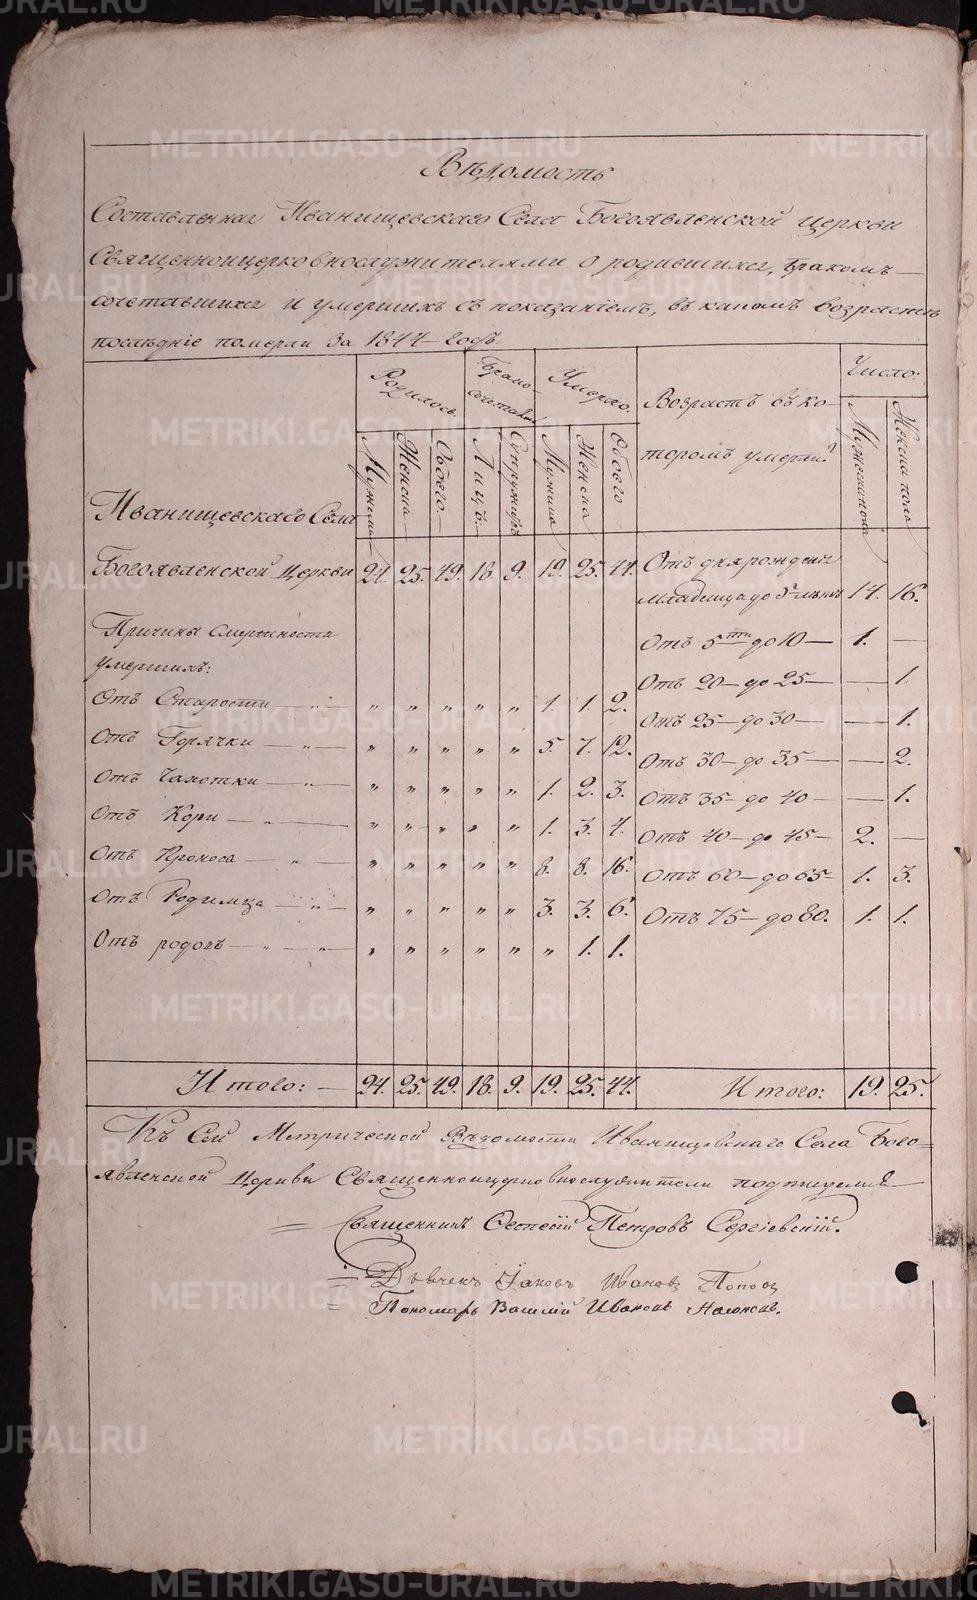 Вѣдомость
Составленная Иванищевскаго Села Богоявленской Церкви
Священноицерковнослужителями о родившихся, бракомъ—
сочетавшихся и умершихъ съ показаніемъ, въ какомъ возрастѣ
послѣдніе померли за 1844 годъ.
Родилось Брако- сочетав. Умерло. Возрастъ въ ко- Число:
торомъ умерли?
Мужеска Женска Обоего. Лицъ. Супружествъ Мужеска Женска Обоего Мужеска пола Женска пола
Иванищевскаго Села
Богоявленской Церкви 24. 25. 49. 18. 9. 19. 25. 44. Отъ дня рожденія
младенца до 5 лѣтъ 14. 16.
Причины смертности
умершихъ:
Отъ 5ти до 10— 1. —
Отъ 20— до 25— — 1.
Отъ Старости — „ — „ „ „ „ „ 1. 1. 2.
Отъ 25— до 30— — 1.
Отъ Горячки — „ — „ „ „ „ „ 5. 7. 12.
Отъ 30— до 35— — 2.
Отъ Чахотки — „ — „ „ „ „ „ 1. 2. 3.
Отъ 35— до 40— — 1.
Отъ Кори — „ — „ „ „ „ „ 1. 3. 4.
Отъ 40— до 45— 2. —
Отъ Проноса — „ — „ „ „ „ „ 8. 8. 16.
Отъ 60— до 65— 1. 3.
Отъ Родимца — „ — „ „ „ „ „ 3. 3. 6.
Отъ 75— до 80. 1. 1.
Отъ родовъ — „ — „ „ „ „ „ „ „ 1. 1.
Итого: — 24. 25. 49. 18. 9. 19. 25. 44. Итого: 19. 25.
Къ Сей Метрической Вѣдомости Иванищевскаго Села Бого=
явленской Церкви Священноицерковнослужители подписуемся
= Священникъ Петровъ Сергіевскій.
= Дьячекъ Іаковъ Ивановъ Поповъ
= Пономарь Василій Ивановъ
METRIKI.GASO-URAL.RU